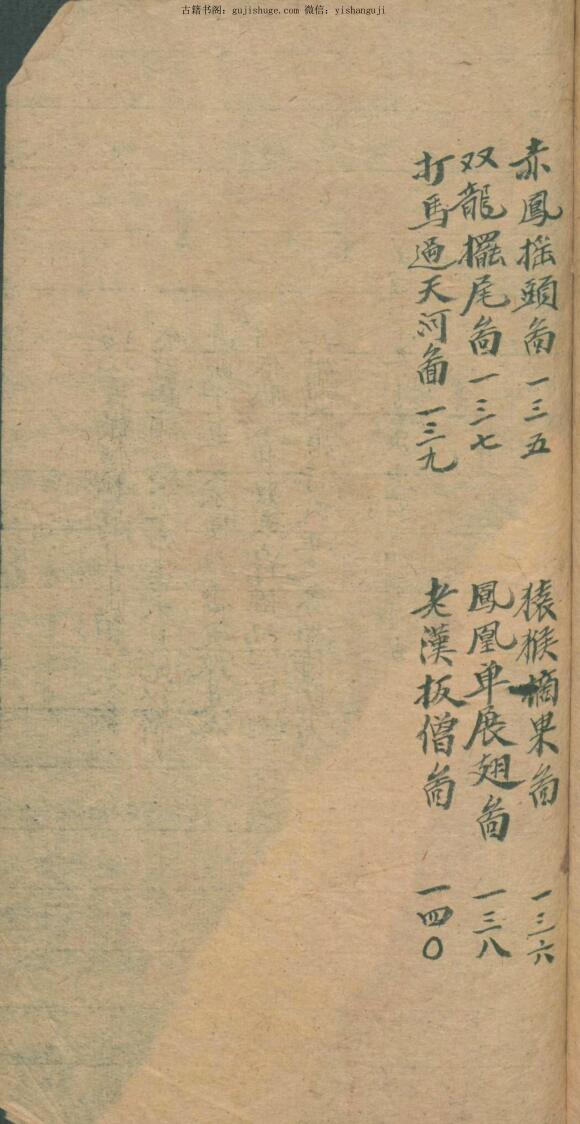 古籍书阁：gujishuge.com 微信：yishanguji
赤鳳搖頭啚 一三五
猿猴摘果啚 一三六
双龍擺尾啚 一三七
鳳凰单展翅啚 一三八
打馬過天河啚 一三九
老漢扳僧啚 一四〇